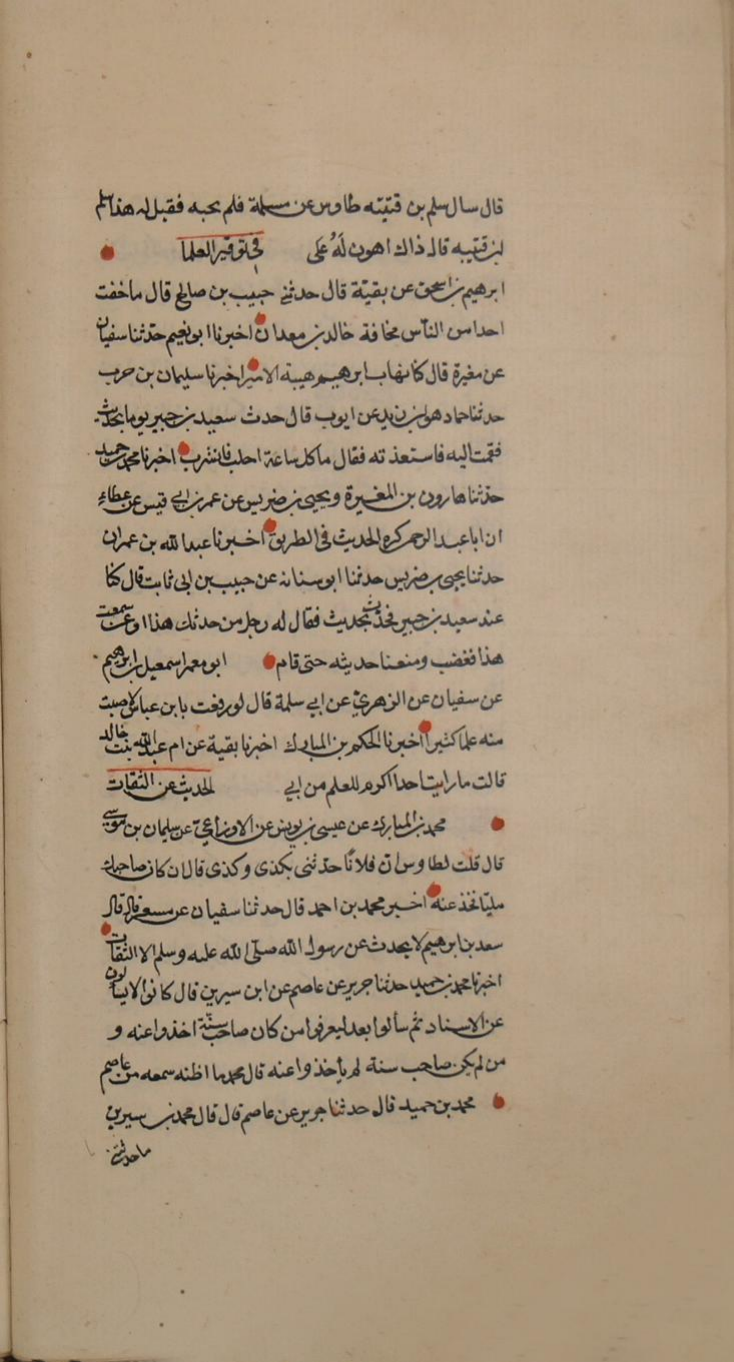 قال سال سلم بن قتيبه طاوس عن مسئلة فلم يجبه فقيل له هذا سلم
بن قتيبه قال ذاك اهون له على في توقير العلما
ابرهيم بن اسحق عن بقية قال حدثني حبيب بن صالح قال ما خفت
احدا من الناس مخافة خالد بن معدان اخبرنا ابو نعيم حدثنا سفيان
عن مغيرة قال كنا نهاب ابرهيم هيبة الامير اخبرنا سليمان بن حرب
حدثنا حماد هو ابن زيد عن ايوب قال حدث سعيد بن جبير يوما بحديث
فقمت اليه فاستعذته فقال ما كل ساعة احلب فاشرب اخبرنا محمد بن حميد
حدثنا هارون بن المغيرة ويحيى بن ضريس عن عمر بن ابي قيس عن عطاء
ان ابا عبد الرحمن كره الحديث في الطريق اخبرنا عبد الله بن عمران
حدثنا يحيى بن ضريس حدثنا ابو سنان عن حبيب بن ابى ثابت قال كنا
عند سعيد بن جبير فحدث بحديث فقال له رجل من حدثك هذا او عمن سمعت
هذا فغضب ومنعنا حديثه حتى قام ابو معمر اسمعيل بن ابرهيم
عن سفيان عن الزهري عن ابي سلمة قال لو رفقت بابن عباس لاصبت
منه علما كثيرا اخبرنا الحكم بن المبارك اخبرنا بقية عن ام عبد الله بنت خالد
قالت ما رايت احدا اكرم للعلم من ابي الحديث عن الثقات
محمد بن المبارك عن عيسى بن يونس عن الاوزاعي عن سليمان بن موسى
قال قلت لطاوس ان فلانا حدثنى بكذى وكذى قال ان كان صاحبك
مليا فخذ عنه اخبر محمد بن احمد قال حدثنا سفيان عن مسعر قال قال
سعد بن ابرهيم لا يحدث عن رسول الله صلى الله عليه وسلم الا الثقات
اخبرنا محمد بن حميد حدثنا جرير عن عاصم عن ابن سيرين قال كانوا لا يسالون
عن الاسناد ثم سالوا بعد ليعرفوا من كان صاحب سنة اخذوا عنه و
من لم يكن صاحب سنة لم ياخذوا عنه قال محمد ما اظنه سمعه من عاصم
محمد بن حميد قال حدثنا جرير عن عاصم قال قال محمد بن سيرين
ما حدثتني